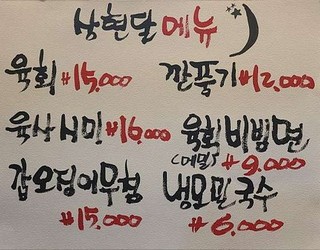 상현달 메뉴
육회 ₩15,000
깐풍기 ₩12,000
육사시미 ₩16,000
육회비빔면
(메밀) ₩9,000
갑오징어무침
₩15,000
냉모밀국수
₩6,000